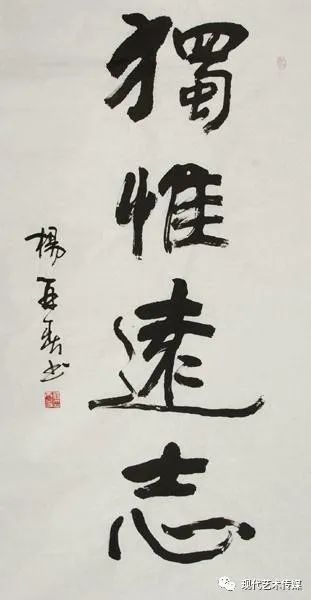 獨惟遠志
楊再春书
现代艺术传媒